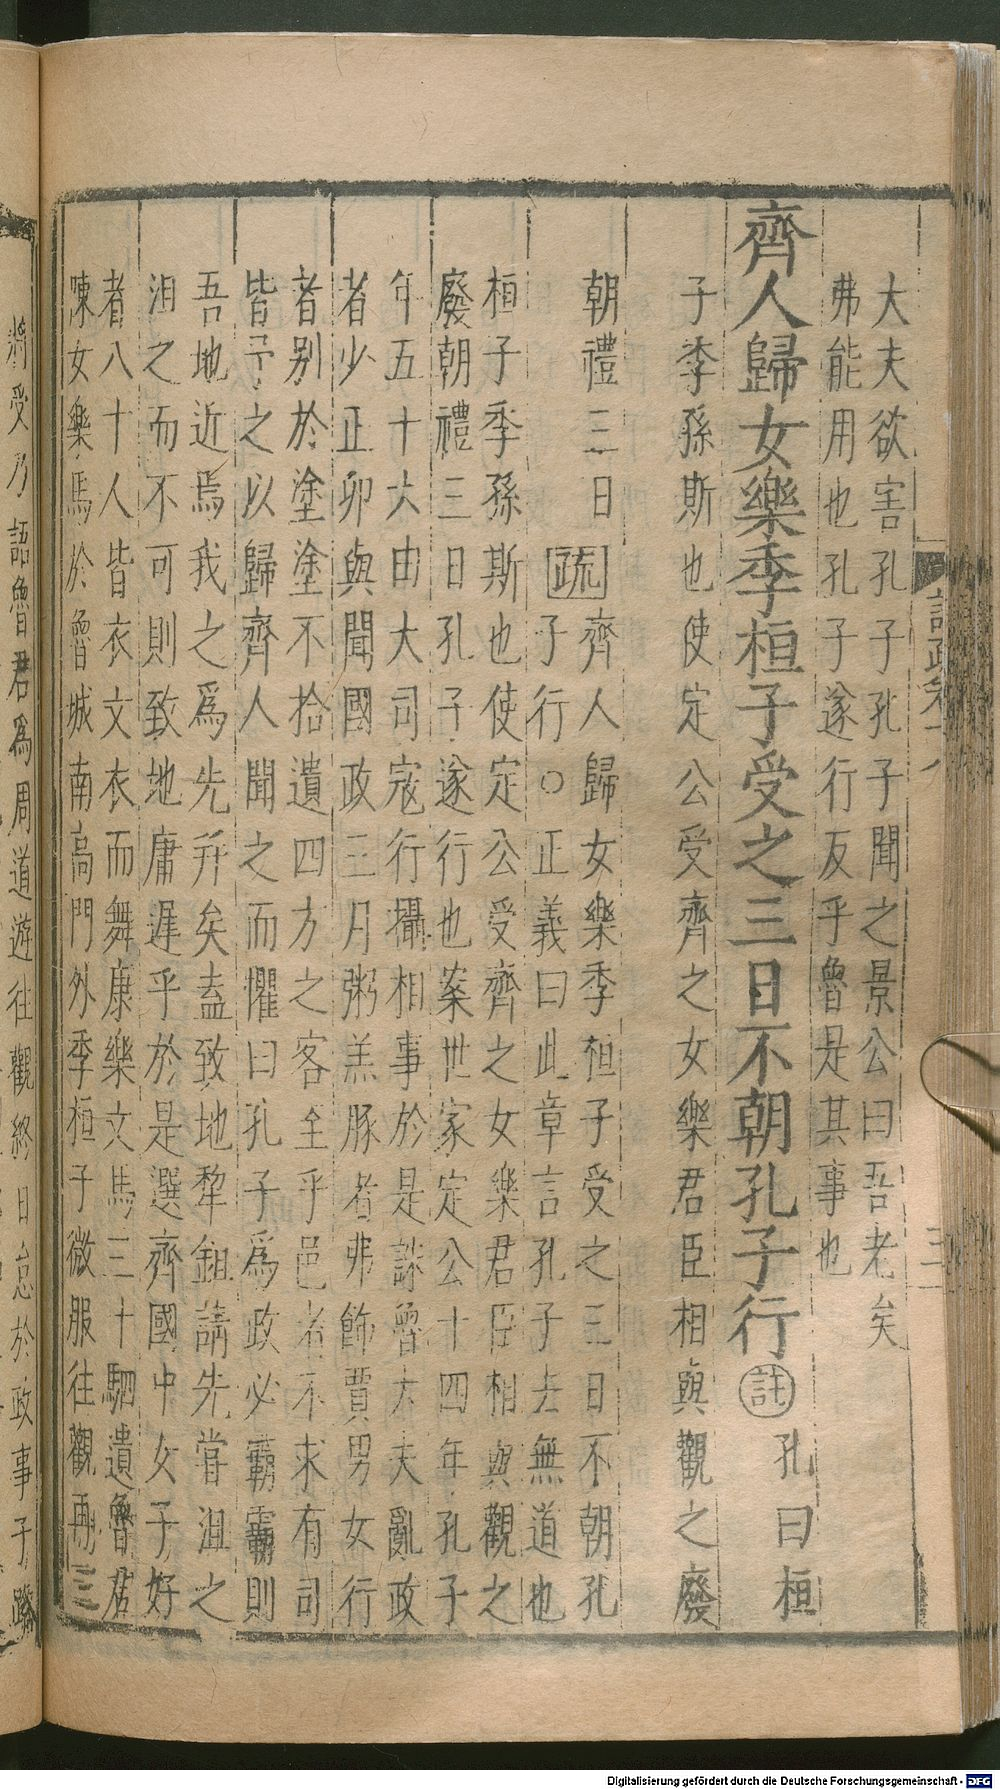 大夫欲害孔子孔子聞之景公曰吾老矣
弗能用也孔子遂行反乎魯是其事也
齊人歸女樂季桓子受之三日不朝孔子行
註
孔曰桓
子季孫斯也使定公受齊之女樂君臣相與觀之廢
朝禮三日
疏
齊人歸女樂季桓子受之三日不朝孔
子行○正義曰此章言孔子去無道也
桓子季孫斯也使定公受齊之女樂君臣相與觀之
廢朝禮三日孔子遂行也案世家定公十四年孔子
年五十六由大司寇行攝相事於是誅魯大夫亂政
者少正卯與聞國政三月粥羔豚者弗飾賈男女行
者別於塗塗不拾遺四方之客至乎邑者不求有司
皆予之以歸齊人聞之而懼曰孔子為政必霸霸則
吾地近焉我之爲先并矣盍致地犂鉏請先嘗沮之
沮之而不可則致地庸遲乎於是選齊國中女子好
者八十人皆衣文衣而舞康樂文馬三十駟遺魯君
陳女樂馬於魯城南高門外季桓子微服往觀再三
將受乃語魯君爲周道遊往觀終日怠於政事子路
Digitalisierung gefördert durch die Deutsche Forschungsgemeinschaft - DFG